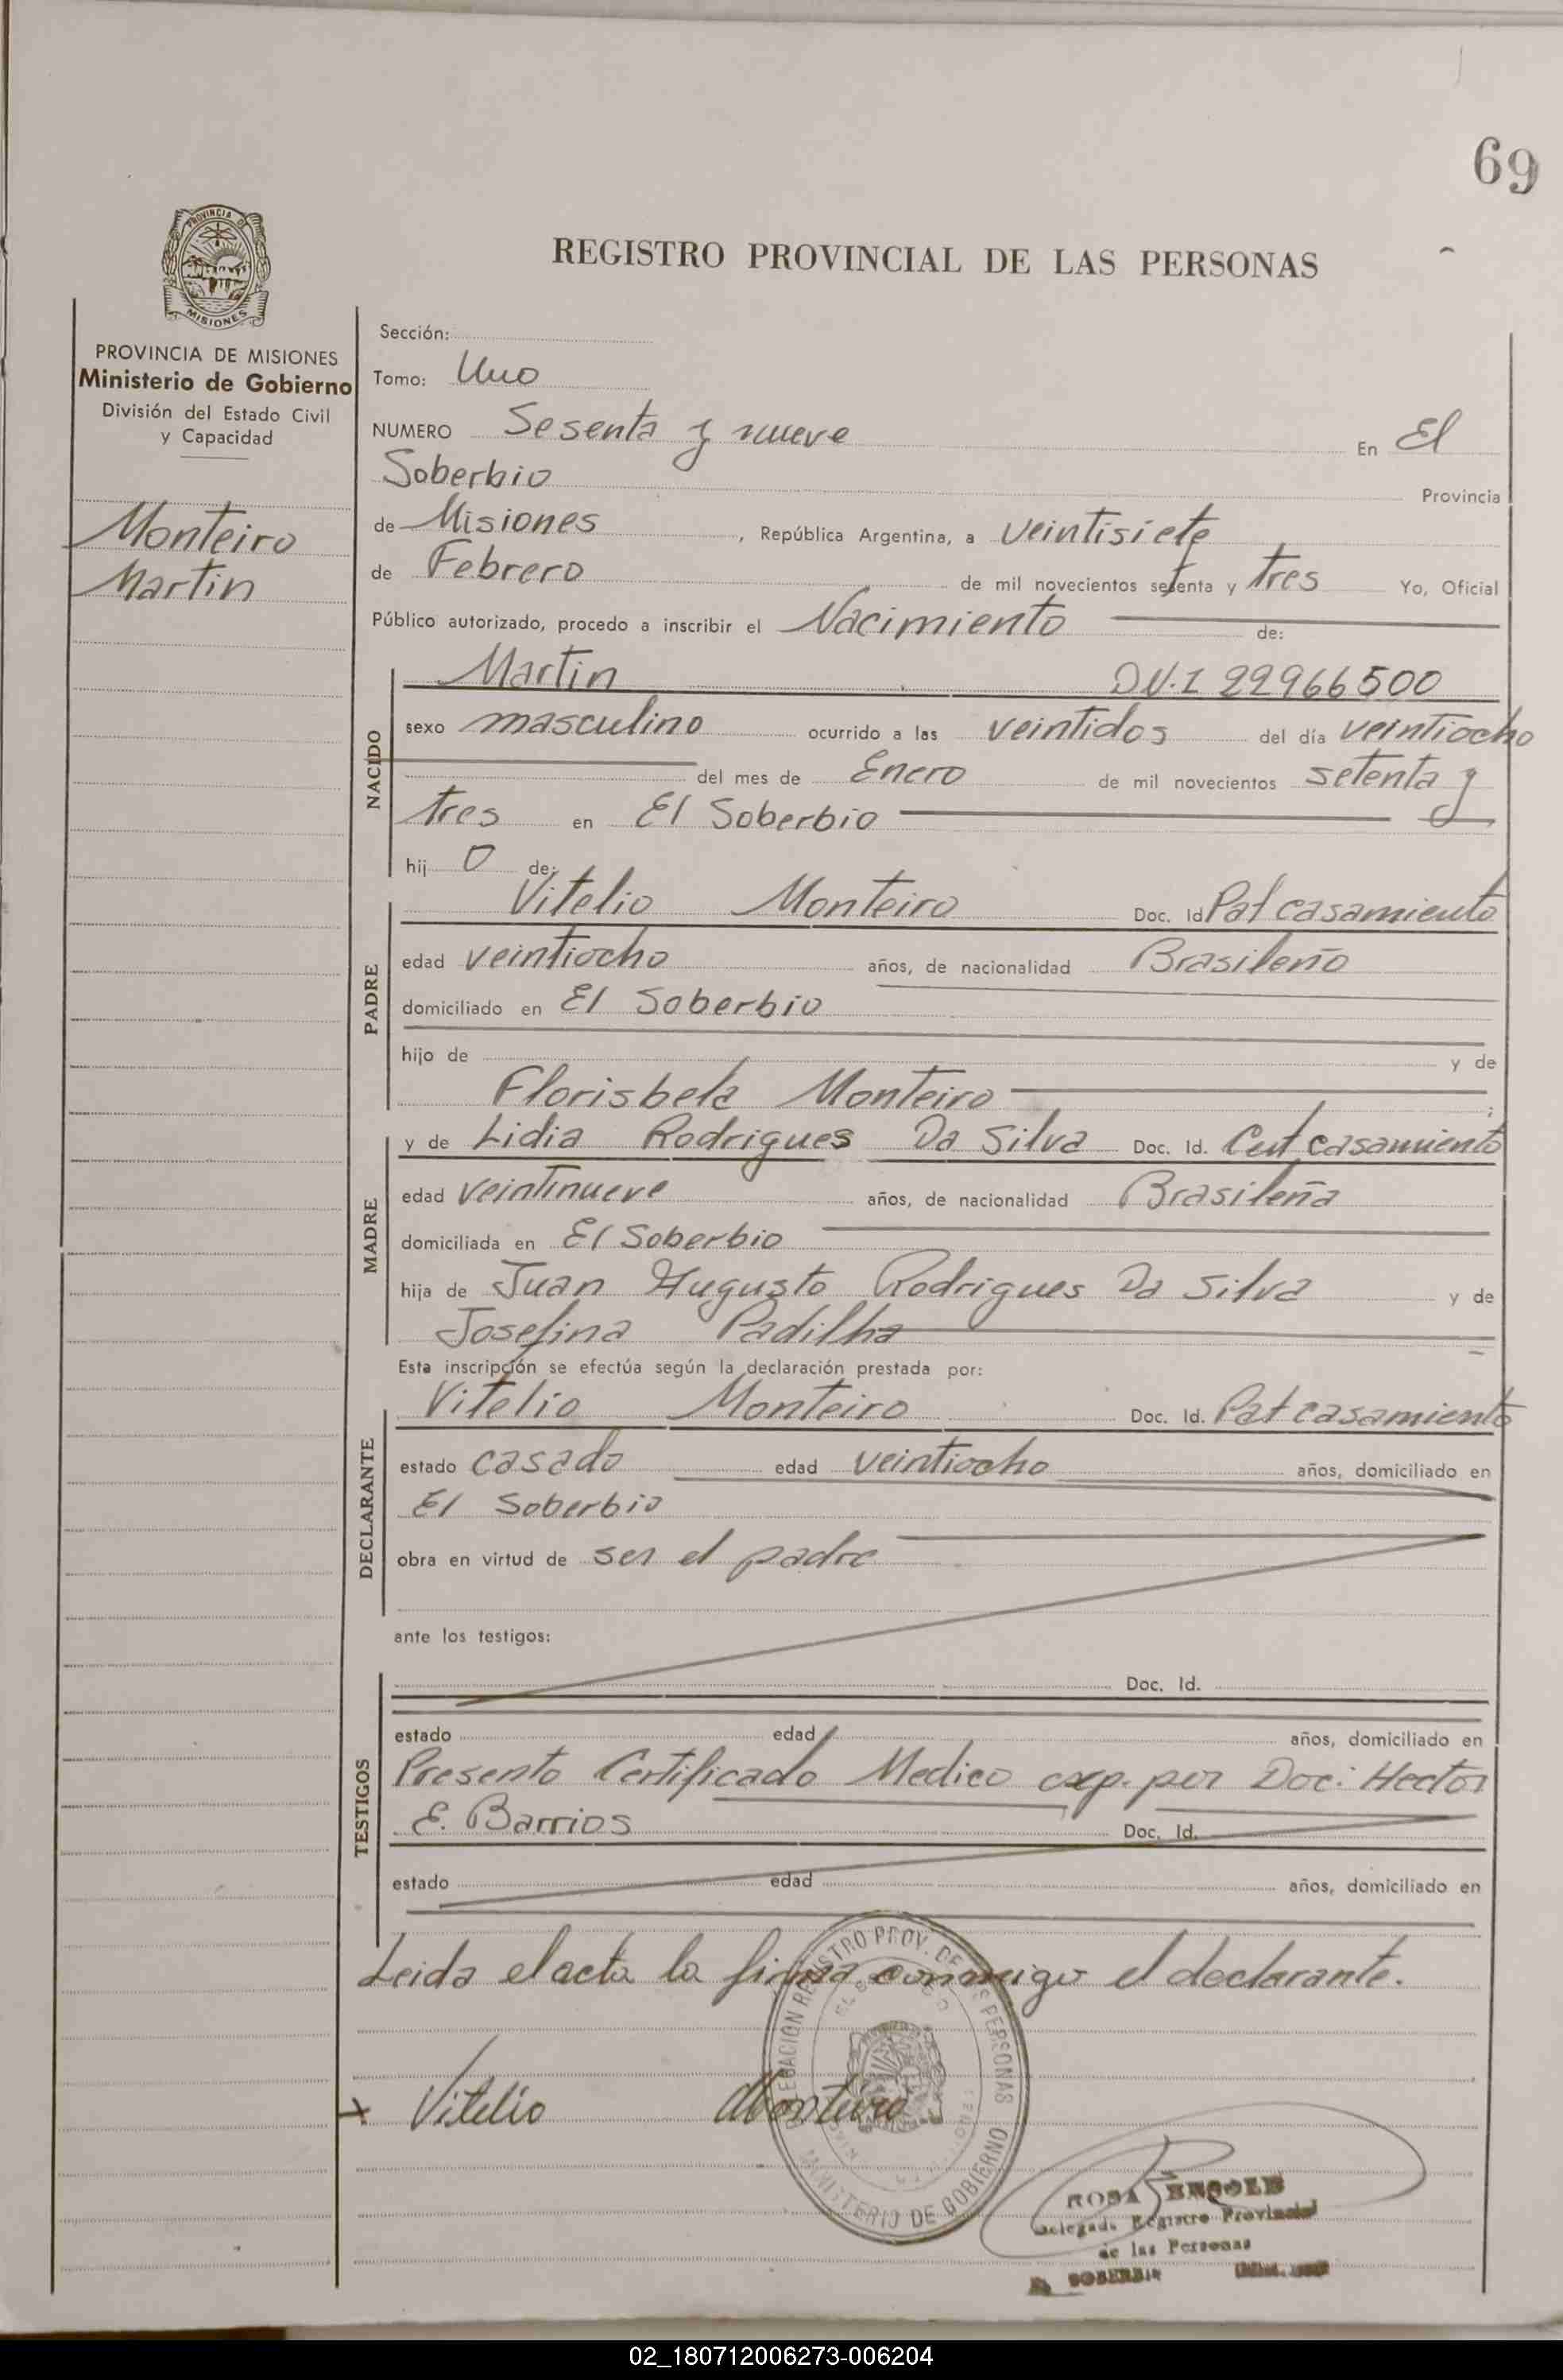 69
REGISTRO PROVINCIAL DE LAS PERSONAS
PROVINCIA DE MISIONES
Ministerio de Gobierno
División del Estado Civil
y Capacidad
Monteiro
Martin
Sección:
Tomo: Uno
NUMERO Sesenta y nueve En El
Soberbio Provincia
de Misiones, República Argentina, a veintisiete
de Febrero de mil novecientos setenta y tres Yo, Oficial
Público autorizado, procedo a inscribir el Nacimiento de:
NACIDO
Martin D.N.I 22966500
sexo masculino ocurrido a las veintidos del día veintiocho
del mes de Enero de mil novecientos setenta y
tres en El Soberbio
hij o de:
PADRE
Vitelio Monteiro Doc. Id Pat casamiento
edad veintiocho años, de nacionalidad Brasileño
domiciliado en El Soberbio
hijo de y de
Florisbela Monteiro ;
MADRE
y de Lidia Rodrigues Da Silva Doc. Id. Cert casamiento
edad veintinueve años, de nacionalidad Brasileña
domiciliada en El Soberbio
hija de Juan Augusto Rodrigues Da Silva y de
Josefina Padilha
Esta inscripción se efectúa según la declaración prestada por:
DECLARANTE
Vitelio Monteiro Doc. Id. Pat casamiento
estado casado edad veintiocho años, domiciliado en
El Soberbio
obra en virtud de ser el padre
ante los testigos:
TESTIGOS
Doc. Id.
estado edad años, domiciliado en
Presento Certificado Medico exp. por Doc: Hector
E. Barrios Doc. Id.
estado edad años, domiciliado en
Leida el acta la firma conmigo el declarante.
DELEGACION REGISTRO PROV. DE LAS PERSONAS
MINISTERIO DE GOBIERNO
x Vitelio Monteiro
ROSA
Delegada Registro Provincial
de las Personas
EL SOBERBIO
02_180712006273-006204